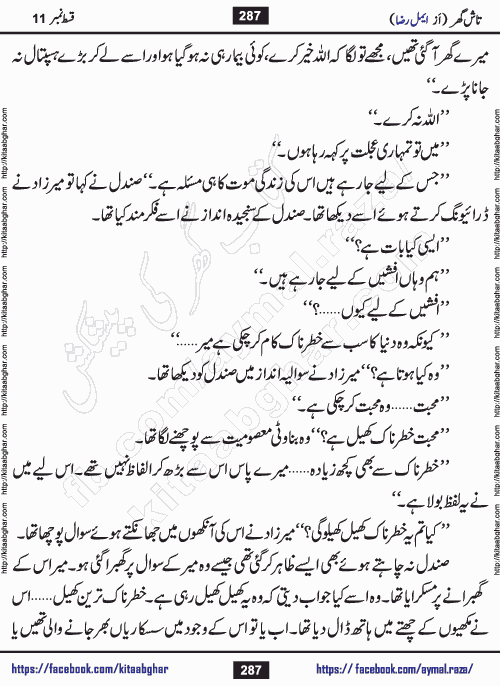 تاش گھر (از ایمل رضا)
287
قسط نمبر 11
میرے گھر آ گئی تھیں، مجھے تو لگا کہ اللہ خیر کرے، کوئی بیمار ہی نہ ہو گیا ہو اور اسے لے کر بڑے ہسپتال نہ
جانا پڑے۔‘‘
’’اللہ نہ کرے۔‘‘
’’میں تو تمہاری عجلت پر کہہ رہا ہوں۔‘‘
’’جس کے لیے جا رہے ہیں اس کی زندگی موت کا ہی مسئلہ ہے۔‘‘ صندل نے کہا تو میرزاد نے
ڈرائیونگ کرتے ہوئے اسے دیکھا تھا۔ صندل کے سنجیدہ انداز نے اسے فکر مند کیا تھا۔
’’ایسی کیا بات ہے؟‘‘
’’ہم وہاں افشیں کے لیے جا رہے ہیں۔‘‘
’’افشیں کے لیے کیوں......؟‘‘
’’کیونکہ وہ دنیا کا سب سے خطرناک کام کر چکی ہے میر......‘‘
’’وہ کیا ہوتا ہے؟‘‘ میرزاد نے سوالیہ انداز میں صندل کو دیکھا تھا۔
’’محبت......وہ محبت کر چکی ہے۔‘‘
’’محبت خطرناک کھیل ہے؟‘‘ وہ بناوٹی معصومیت سے پوچھنے لگا تھا۔
’’خطرناک سے بھی کچھ زیادہ......میرے پاس اس سے بڑھ کر الفاظ نہیں تھے۔ اس لیے میں
نے یہ لفظ بولا ہے۔‘‘
’’کیا تم یہ خطرناک کھیل کھیلو گی؟‘‘ میرزاد نے اس کی آنکھوں میں جھانکتے ہوئے سوال پوچھا تھا۔
صندل نہ چاہتے ہوئے بھی ایسے ظاہر کر گئی تھی جیسے وہ میر کے سوال پر گھبرا گئی ہو۔ میر اس کے
گھبرانے پر مسکرایا تھا۔ وہ اسے کیا جواب دیتی کہ وہ یہ کھیل کھیل رہی ہے۔ خطرناک ترین کھیل......اس
نے مکھیوں کے چھتے میں ہاتھ ڈال دیا تھا۔ اب یا تو اس کے وجود میں سسکاریاں بھر جانے والی تھیں یا
http://kitaabghar.com http://kitaabghar.com http://kitaabghar.com http://kitaabghar.com http://kitaabghar.com http://kitaabghar.com
http://kitaabghar.com http://kitaabghar.com http://kitaabghar.com http://kitaabghar.com http://kitaabghar.com http://kitaabghar.com
کتاب گھر کی پیشکش
fb.com/aymal.raza/
kitaabghar.com
https://facebook.com/kitaabghar
287
https://facebook.com/aymal.raza/